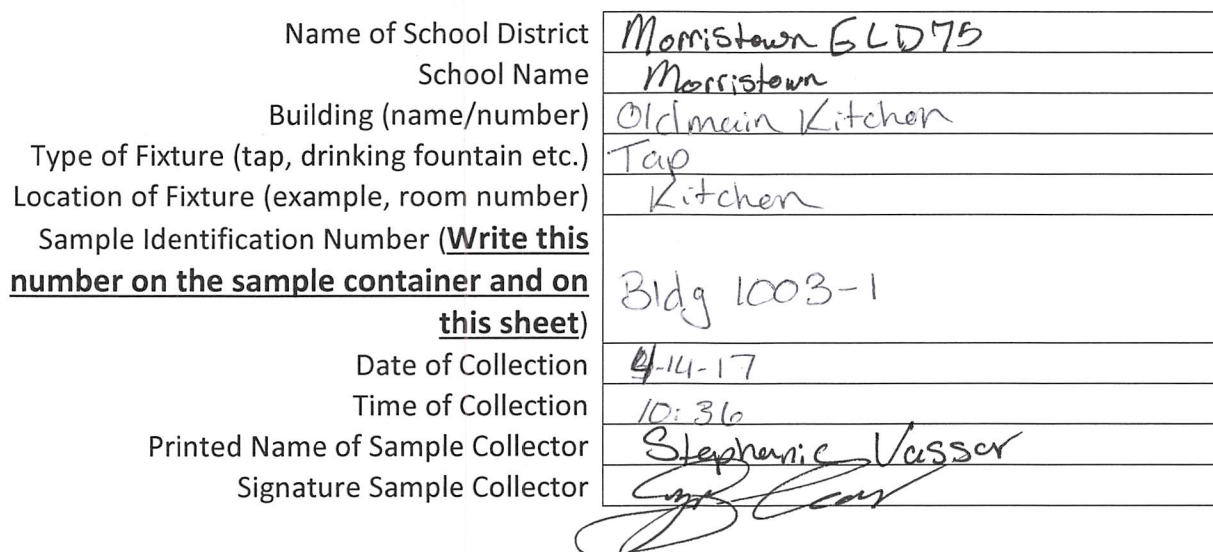 Name of School District Morristown ELD75
School Name Morristown
Building (name/number) Oldmain Kitchen
Type of Fixture (tap, drinking fountain etc.) Tap
Location of Fixture (example, room number) Kitchen
Sample Identification Number (Write this
number on the sample container and on
this sheet) Bldg 1003-1
Date of Collection 4-14-17
Time of Collection 10:36
Printed Name of Sample Collector Stephanie Vassar
Signature Sample Collector